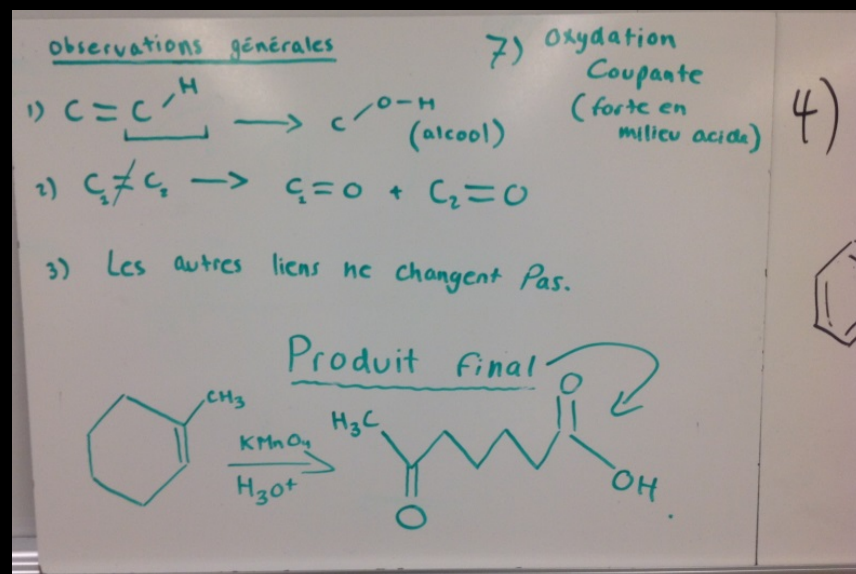 Observations générales
7) Oxydation
Coupante
(forte en
milieu acide)
4)
1) C = C / H → C / O-H
(alcool)
2) C₁ ≠ C₂ → C₁=O + C₂=O
3) Les autres liens ne changent Pas.
Produit final
CH₃
KMnO₄
H₃O+
H₃C
O
O
OH